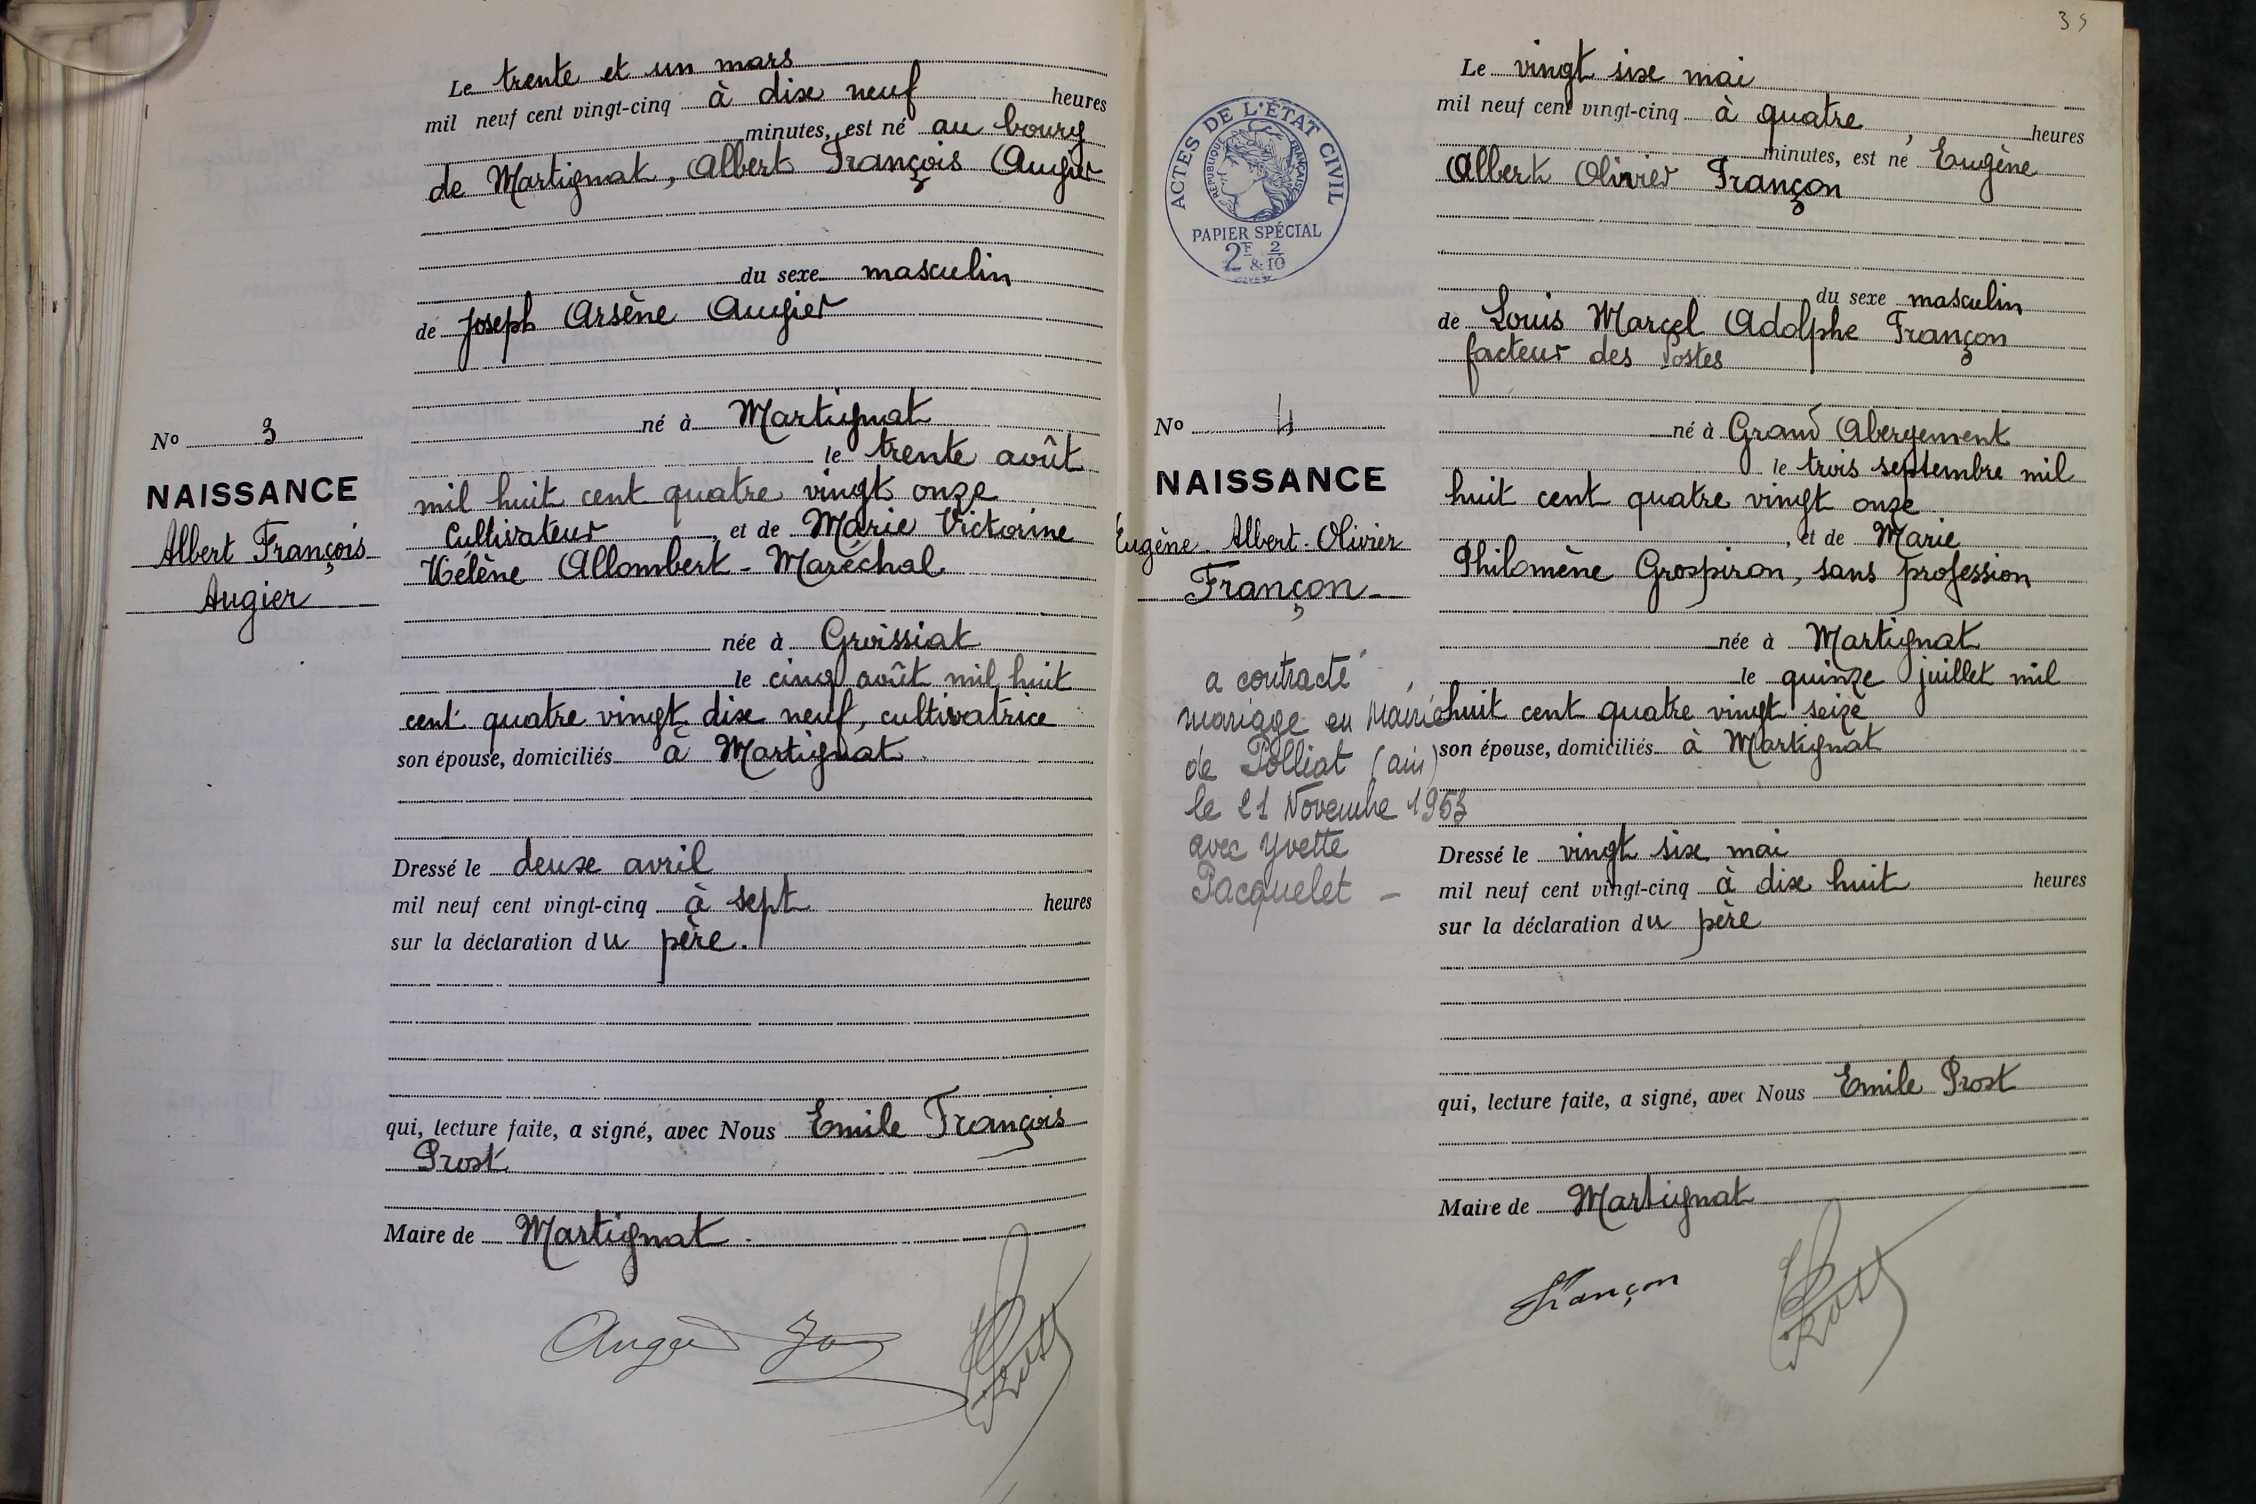 Le trente et un mars
mil neuf cent vingt-cinq à dix neuf heures
minutes, est né au bourg
de Martignat, Albert François Augier
du sexe masculin
de Joseph Arsène Augier
né à Martignat
le trente août
mil huit cent quatre vingt onze
Cultivateur, et de Marie Victorine
Hélène Allombert-Maréchal
née à Groissiat
le cinq août mil huit
cent quatre vingt dix neuf, cultivatrice
son épouse, domiciliés à Martignat.
Dressé le deux avril
mil neuf cent vingt-cinq à sept heures
sur la déclaration du père.
qui, lecture faite, a signé, avec Nous Emile François
Prost
Maire de Martignat.
Prost
No 3
NAISSANCE
Albert François
Augier
39
Le vingt six mai
mil neuf cent vingt-cinq à quatre heures
minutes, est né, Eugène
Albert Olivier Françon
du sexe masculin
de Louis Marcel Adolphe Françon
facteur des Postes
né à Grand Abergement
le trois septembre mil
huit cent quatre vingt onze
, et de Marie
Philomène Grospiron, sans profession
née à Martignat
le quinze juillet mil
huit cent quatre vingt seize
son épouse, domiciliés à Martignat
Dressé le vingt six mai
mil neuf cent vingt-cinq à dix huit heures
sur la déclaration du père
qui, lecture faite, a signé, avec Nous Emile Prost
Maire de Martignat
Françon
Prost
ACTES DE L'ÉTAT CIVIL
RÉPUBLIQUE FRANÇAISE
PAPIER SPÉCIAL
2F & 2/10
No 4
NAISSANCE
Eugène Albert-Olivier
Françon
a contracté
mariage en Mairie
de Polliat (ain)
le 21 Novembre 1953
avec Yvette
Pacquelet